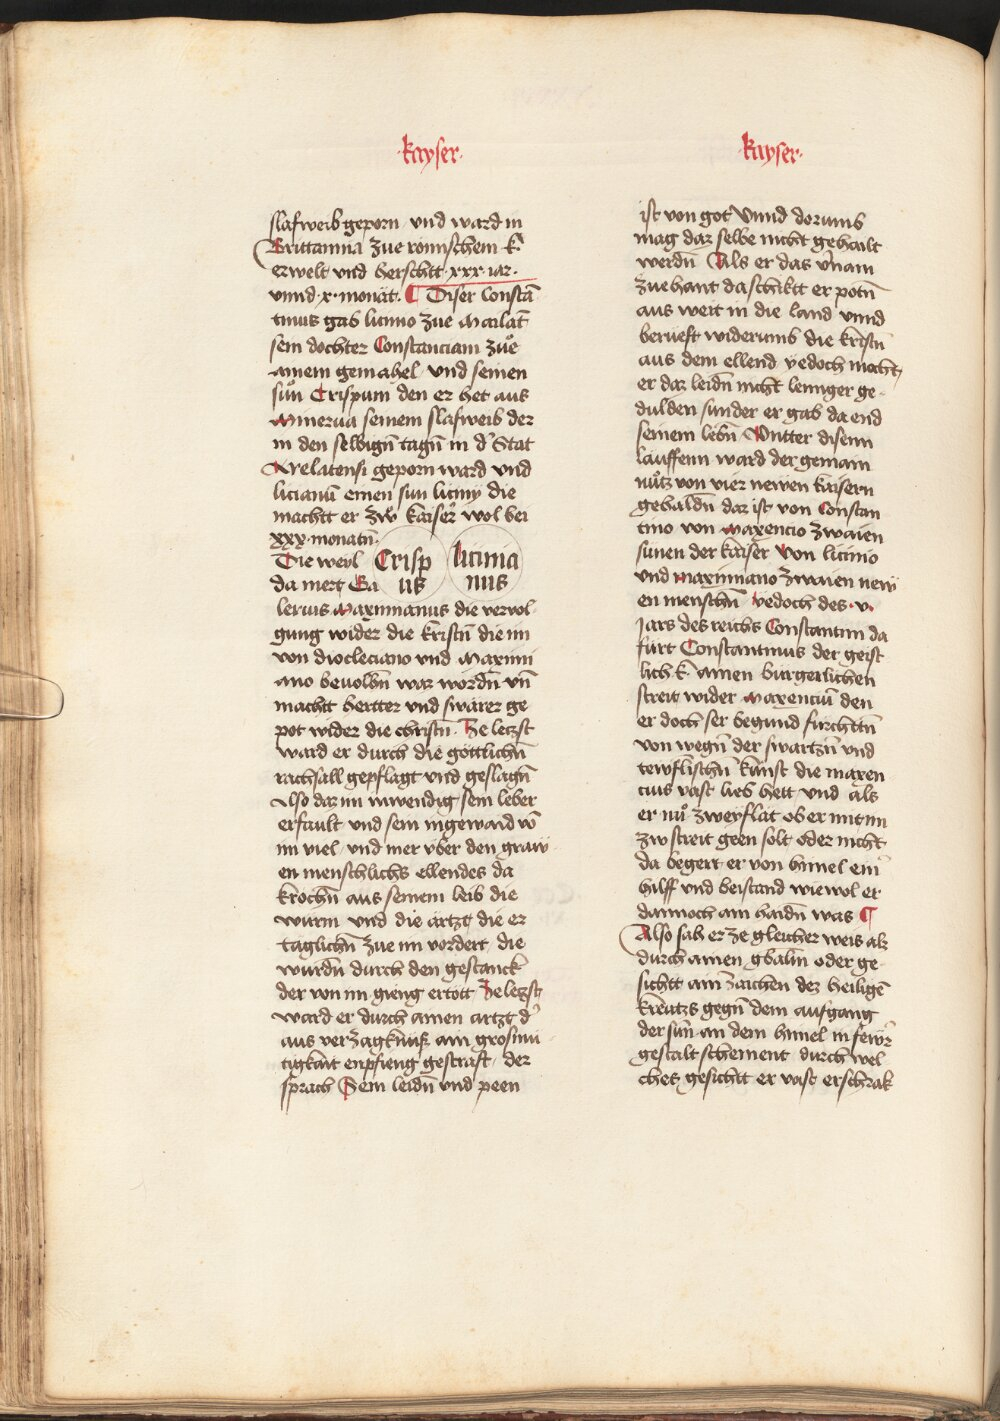 ·kayser·
slafweib geporn · vnd ward in
Brittannia zue römischem k̄
erwelt vnd herschtt ·xxx· iar·
vnnd ·x· monat· ¶ Diser Constā
tinus gab licinio zue Mailāt
sein dochter Constanciam zuͦe
ainem gemahel · vnd seinen
suͦn Crispum den er het aus
Minerua seinem slafweib der
in den selbign̄ tagn̄ in d' Stat
Arelatensi geporn ward vnd
licianū einen sun licinij die
machtt er zẘ kaiser wol bei
xxx· monatn̄·
Die weil
da mert Ga
Crisp
us
licinia
nus
lerius Maximianus die vervol
gung wider die kristn̄ die im
von diocleciano vnd Maximi
ano beuolhn̄ war wordn̄ vn̄
machtt hertter vnd swärer ge
pot wider die christn̄ · Ze letzst
ward er durch die göttlichn̄
rachsall gepflagt vnd geslagn̄
Also daz im inwendig sein leber
erfault vnd sein ingewaid vō
im viel · vnd mer vber den graw
en menschlichs ellendes da
krochn̄ aus seinem leib die
würm · vnd die ärtzt die er
täglichn̄ zue im vordert · die
wurdn̄ durch den gestanck
der von im gieng ertött · Ze letzst
ward er durch ainen artzt d'
aus verzagknuß ain grosmü
tigkait enpfieng gestraft · der
sprach Sein leidn̄ vnd peen
kayser·
ist von got Vnnd dorumb
mag daz selbe nicht gehailt
werdn̄ Als er das v'nam
zuehant da schiktt er potn̄
aus weit in die land vnnd
berueft widerumb die kristn̄
aus dem ellend yedoch mocht
er daz leidn̄ nicht lenniger ge·
dulden sunder er gab da end
seinem lebn̄ Vntter disenn
läuffenn ward der gemain
nutz von vier newen kaisern
gehaldn̄ daz ist von Constan
tino von Maxencio zwaien
sünen der kaiser Von licinio
vnd Maximiano zwaien new
en menschn̄ · yedoch des ·v·
Jars des reichs Constantini da
fürt Constantinus der geist
lich k̄ ainen bürgerlichen
streit wider Maxenciū den
er doch ser begund fürchttn̄
von wegn̄ der swartzn̄ vnd
tewflischn̄ künst die maxen
cius vast lieb hett · vnd als
er nuͦ zweyflät ob er mit im
zw streit geen solt oder nicht
da begert er von himel ein
hilff vnd beistand wiewol er
dannoch ain haidn̄ was ¶
Also sah er ze gleicher weis alz
durch ainen gbalm oder ge·
sichtt ain zaichen dez heiligē
kreutzs gegn̄ dem aufgang
der sun̄ an dem himel in fewr̄
gestalt scheinent durch wel
ches gesichtt er vast erschrak